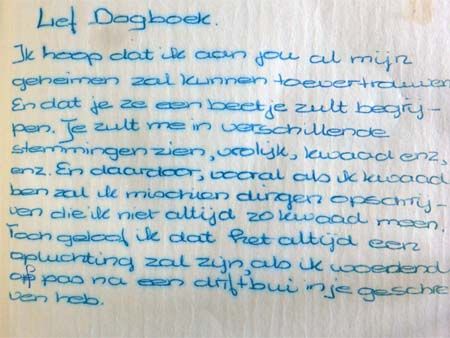 Lief Dagboek.
Ik hoop dat ik aan jou al mijn
geheimen zal kunnen toevertrouwen
En dat je ze een beetje zult begrij-
pen. Je zult me in verschillende
stemmingen zien, vrolijk, kwaad enz,
enz. En daardoor, vooral als ik kwaad
ben zal ik mischien dingen opschrij-
ven die ik niet altijd zo kwaad meen.
Toch geloof ik dat het altijd een
opluchting zal zijn, als ik woedend
of pas na een driftbui in je geschre
ven heb.